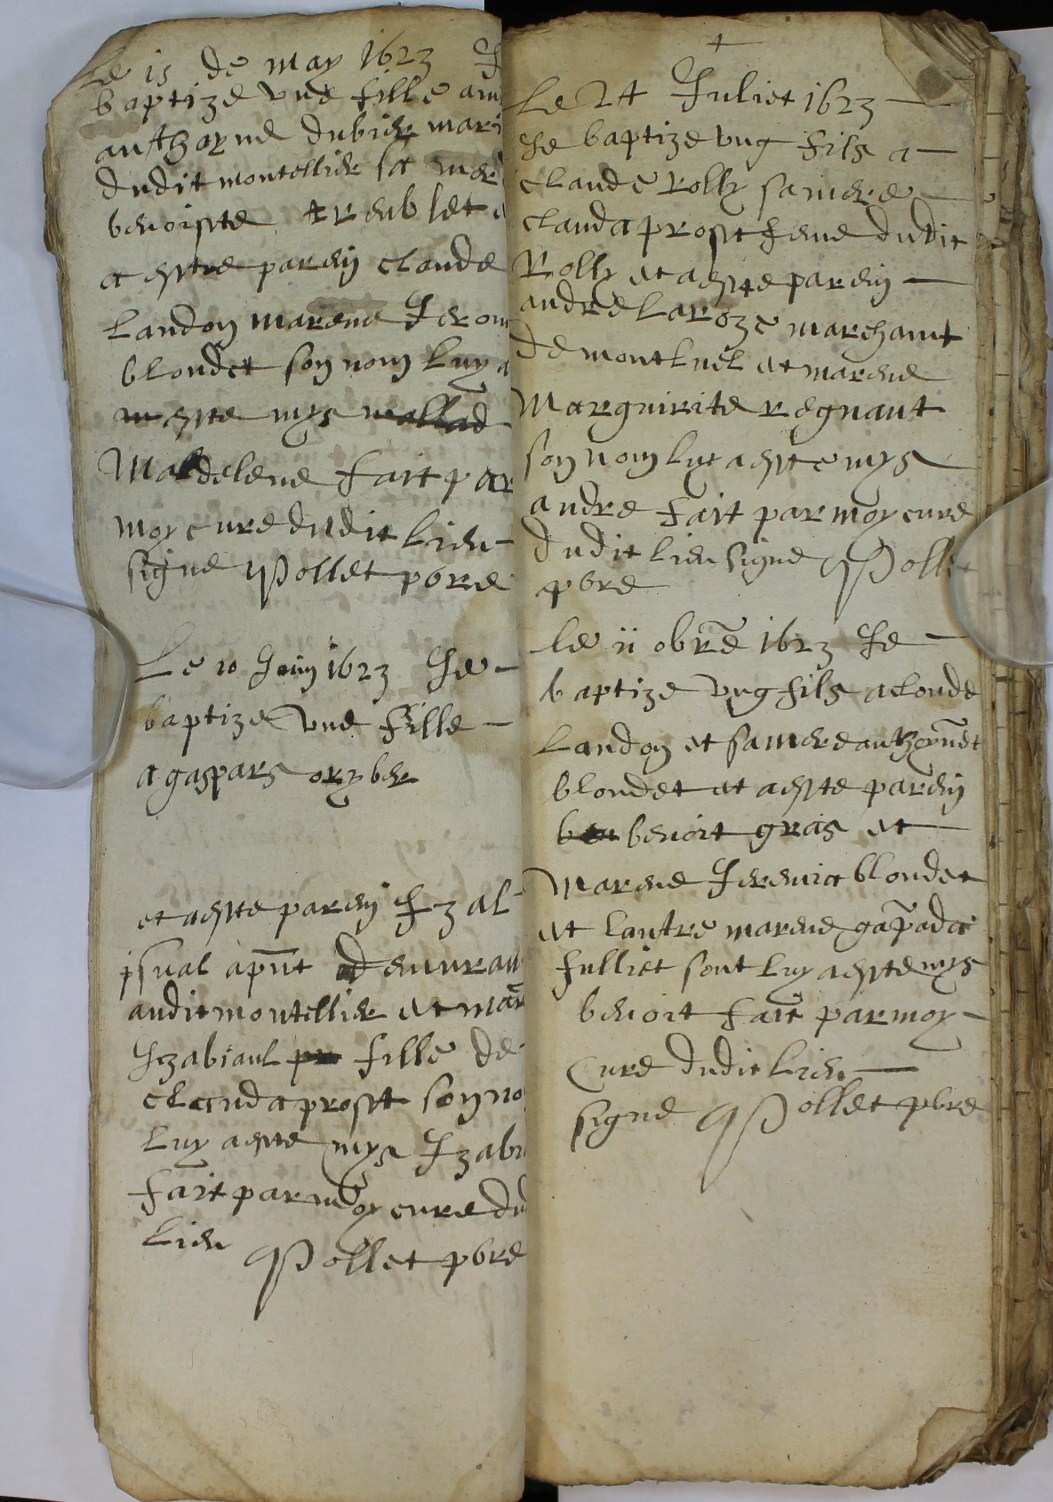 Le 15 de may 1623 Je
baptize une fille a m
anthoyne dubier mari
dudit montellier sa mer
benoiste treublet e
a este pareÿ claude
Landoy marene Jerom
blondet soy noy luy a
m este mys mallad
Maldelene fait par
moy cure dudit lieu
signe Pollet pbre
Le 10 Juiy 1623 Je
baptize une fille
a gaspars oryber
et a este pareÿ Jzal
apnt demuran
audit montellier et mar
Jzabiaul pr fille de
clauda prost soy no
luy a este mys Jzabi
fait par moy cure dud
lieu Pollet pbre
+
Le 24 Juliet 1623
Je baptize ung fils a
claude Rolly sa mere
clauda prost feme dudit
Rolly et a este pareÿ
andre Laroze marchant
de montluel et marene
Marguirite regnaut
soy noy luy a este mys
andre fait par moy cure
dudit lieu signe Polle
pbre
le ii obre 1623 Je
baptize ung fils a cloude
Landoy et sa mere anthoynet
blondet et a este pareÿ
ben benoit gras et
marene Jerenica blondet
et lautre marene gapada
fulliet sont luy a este mys
benoit fait par moy
cure dudit lieu
signe Pollet pbre